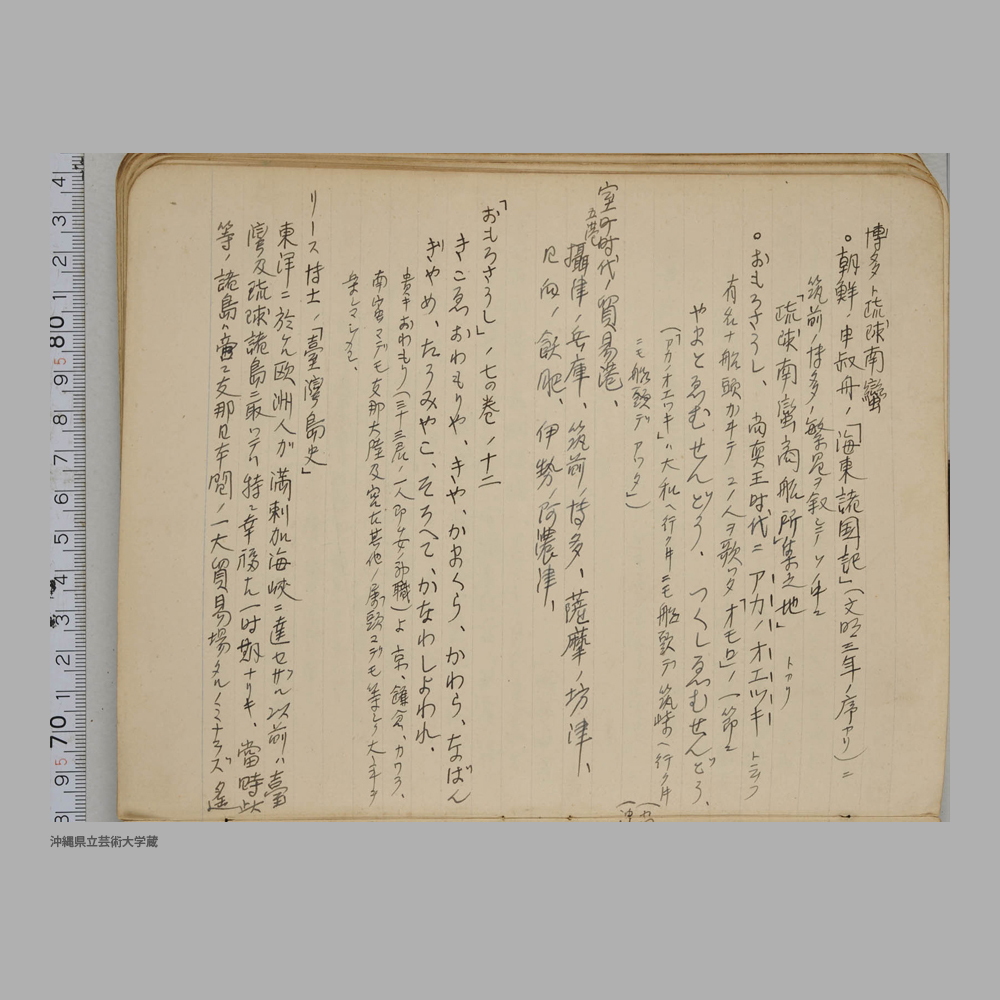 博多ト琉球南蠻
。朝鮮ノ申叔舟ノ「海東諸国記」(文明三年ノ序アリ)ニ
筑前ノ博多ノ繁昌ヲ叙シテソノ中ニ
「琉球南蛮商舶所集之地」トアリ
。おもろさうし、尚真王时代ニアカノオエツキト云フ
有名ナ船頭ガヰテコノ人ヲ歌ツタオモロノ一節ニ
やまとゑむせんどう、つくしゑむせんどう、
(「アカノオエツキ」ハ大和ヘ行ク時ニモ船頭デ筑紫ヘ行ク时
ニモ船頭デアツタ」)
室町时代ノ貿易港、
五港
攝津ノ兵庫、筑前ノ博多、薩摩ノ坊津、
日向ノ飫肥、伊勢ノ阿濃津、
「おもろさうし」ノ七の巻ノ十二
きこゑおわもりや、きや、かまくら、かわら、なばん
ぎやめ、たうみやこ、そろへて、かなわしよわれ、
貴キおわもり(三十三辰ノ一人即女ノ神職)よ京、鎌倉、カワラ、
南蛮マデモ支那大陸及宮古其他ノ
リース博士ノ「臺灣島史」
東洋ニ於ケル欧洲人ガ満剌加海峡ニ達セザル以前ハ臺
灣及琉球諸島ニ取ツテハ特ニ幸福ナル一时期ナリキ、當時此
等ノ諸島ハ啻ニ支那日本間ノ一大貿易場タルノミナラズ遙
沖縄県立芸術大学蔵